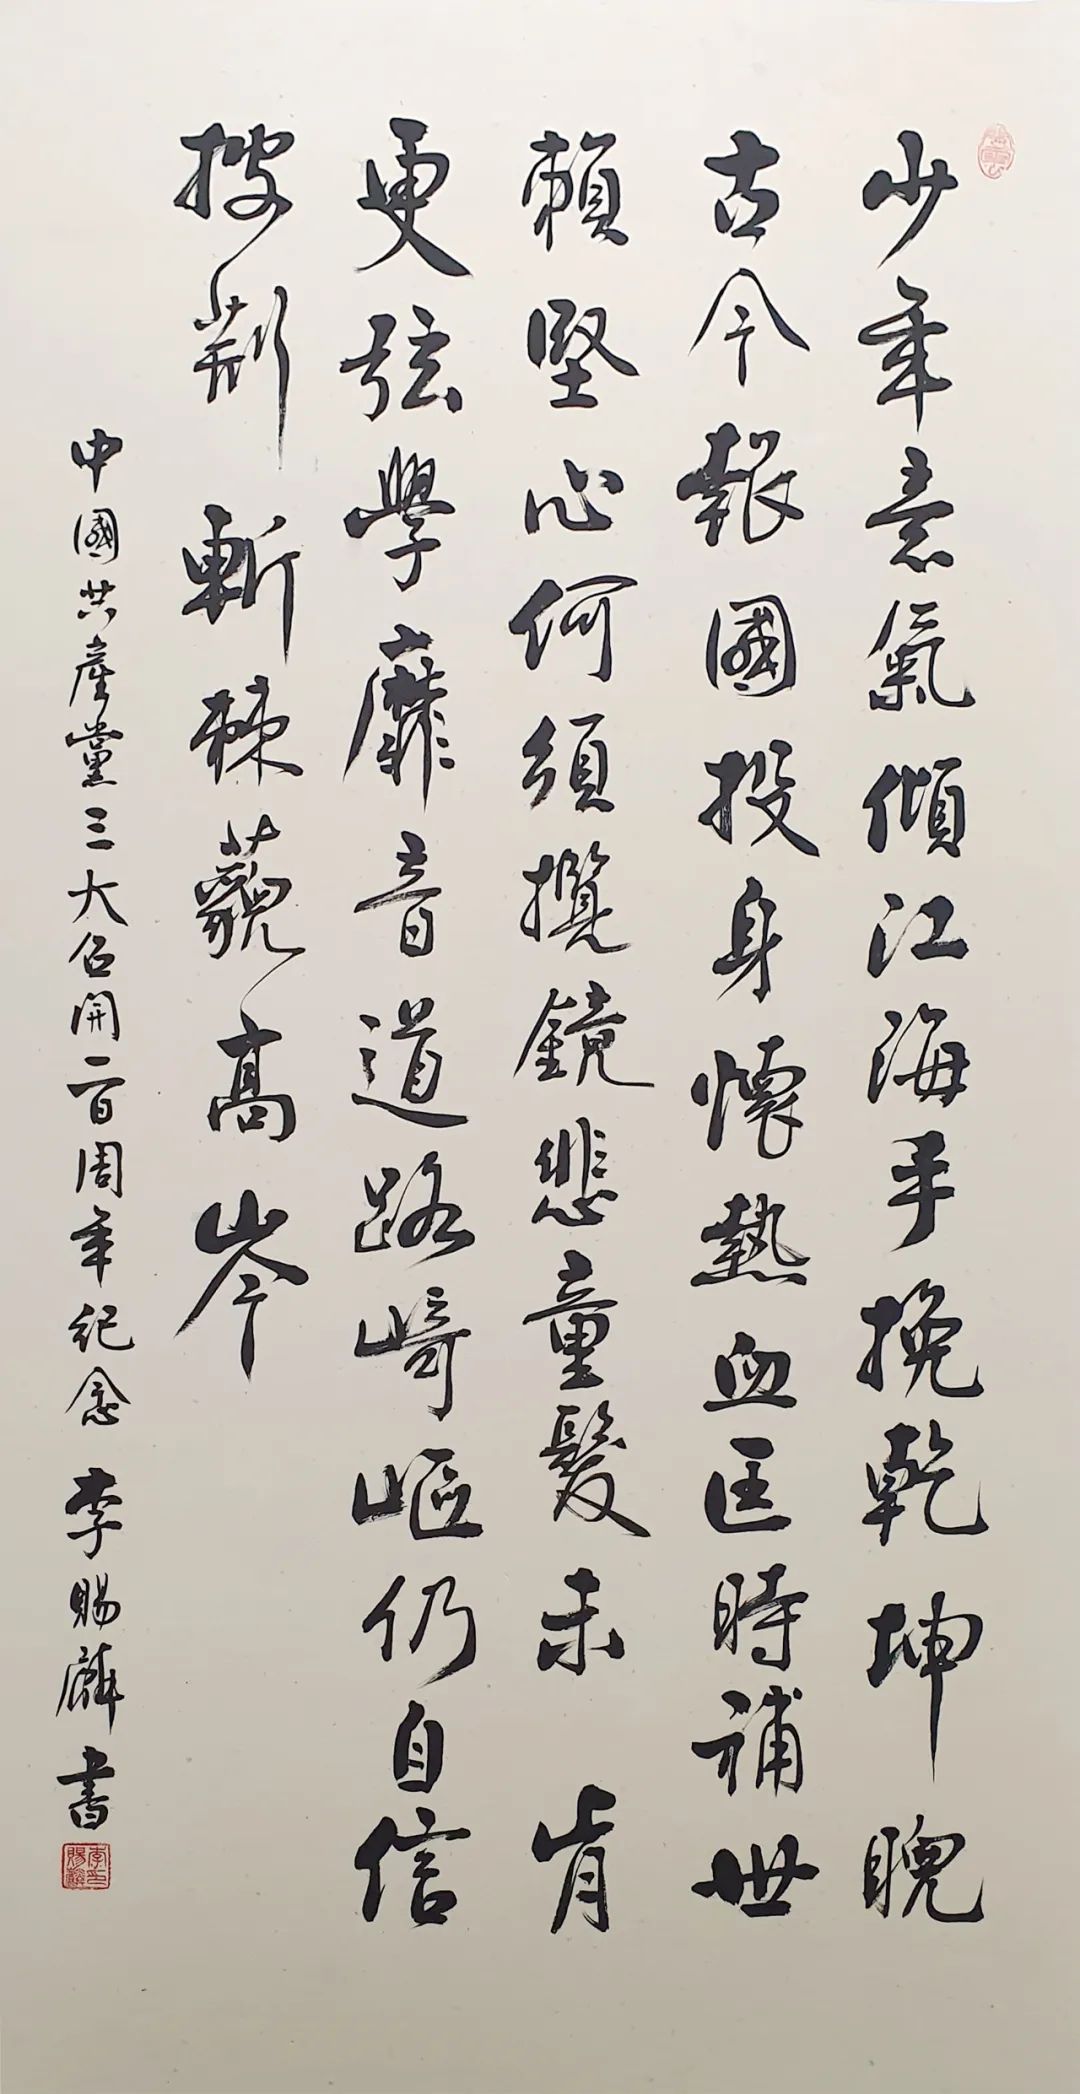 少年意氣傾江海手挽乾坤睨
古今報國投身懷熱血匡時補世
賴堅心何須攬鏡悲童髮未肯
更弦學靡音道路崎嶇仍自信
披荊斬棘藐高岑
中國共產黨三大召開一百周年紀念 李賜麟書